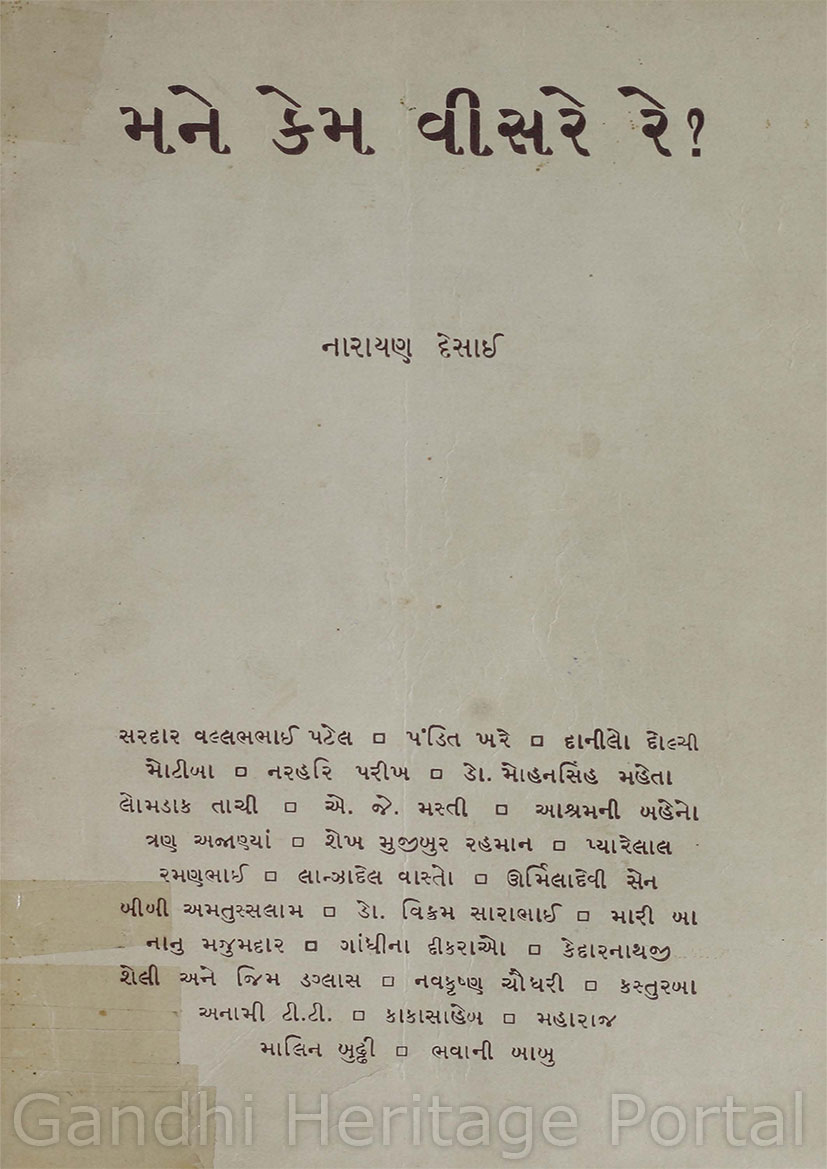 મને કેમ વીસરે રે?
નારાયણ દેસાઈ
સરદાર વલ્લભભાઈ પટેલ □ પંડિત ખરે □ દાનીલો દોલ્ચી
મોટીબા □ નરહરિ પરીખ □ ડો. મોહનસિંહ મહેતા
લોમડાક તાચી □ એ. જે. મસ્તી □ આશ્રમની બહેનો
ત્રણ અજાણ્યાં □ શેખ મુજીબુર રહમાન □ પ્યારેલાલ
રમણભાઈ □ લાન્ઝાદેલ વાસ્તો □ ઊર્મિલાદેવી સેન
બીબી અમતુસ્સલામ □ ડો. વિક્રમ સારાભાઈ □ મારી બા
નાનુ મજુમદાર □ ગાંધીના દીકરાઓ □ કેદારનાથજી
શેલી અને જિમ ડગ્લાસ □ નવકૃષ્ણ ચૌધરી □ કસ્તુરબા
અનામી ટી.ટી. □ કાકાસાહેબ □ મહારાજ
માલિન બુઠ્ઠી □ ભવાની બાબુ
Gandhi Heritage Portal